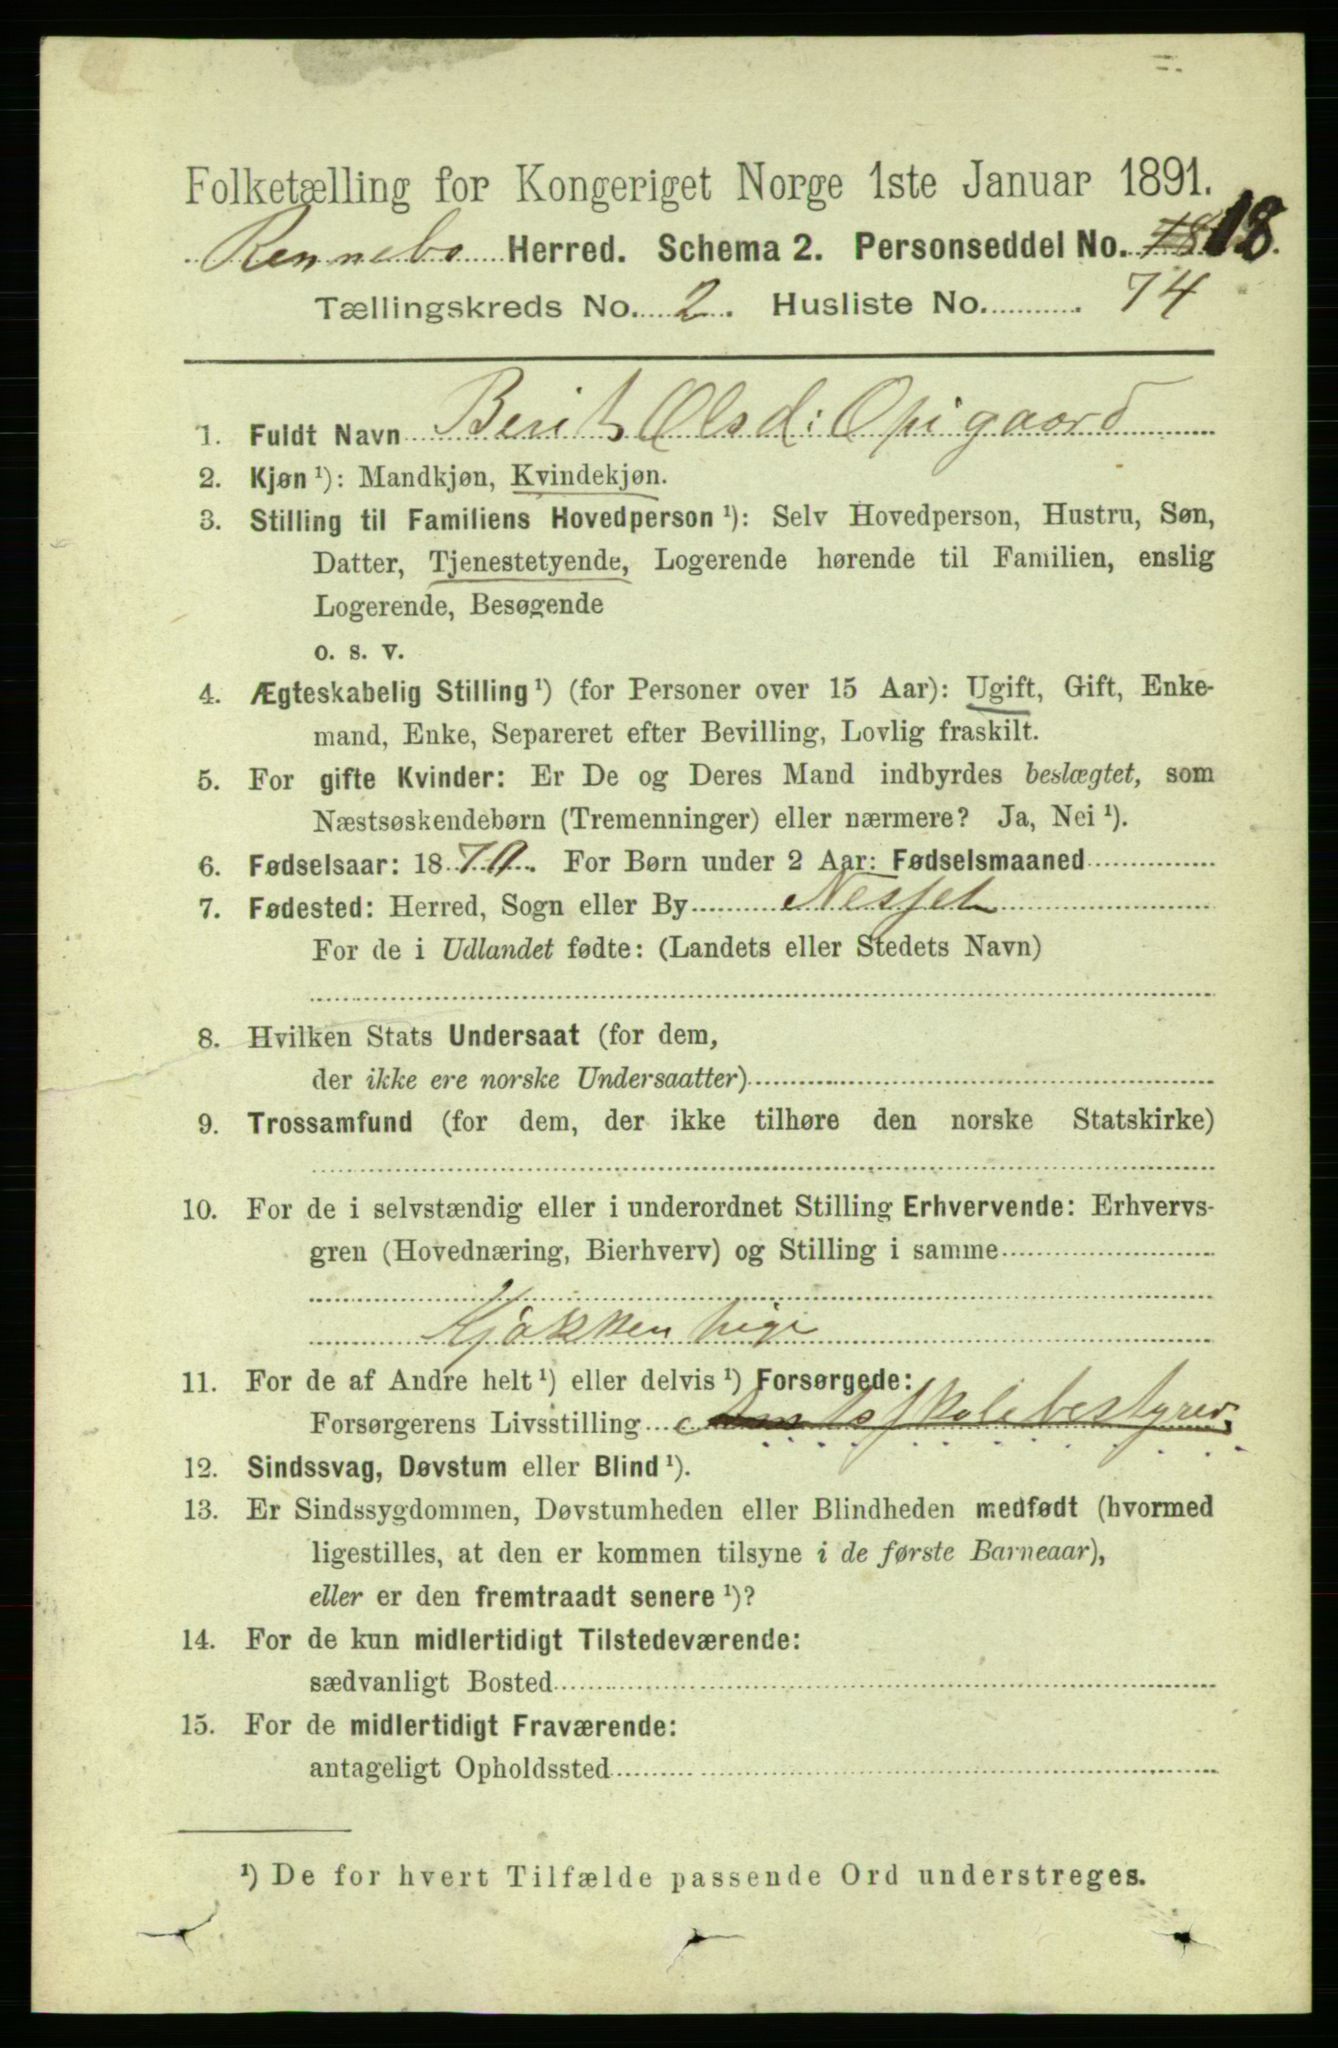 Folketælling for Kongeriget Norge 1ste Januar 1891.
Rennebo Herred. Schema 2. Personseddel No. 18 18.
Tællingskreds No. 2. Husliste No. 74
1. Fuldt Navn Berit Olsd: Opigaard
2. Kjøn ¹): Mandkjøn, Kvindekjøn.
3. Stilling til Familiens Hovedperson ¹): Selv Hovedperson, Hustru, Søn,
Datter, Tjenestetyende, Logerende hørende til Familien, enslig
Logerende, Besøgende
o. s. v.
4. Ægteskabelig Stilling ¹) (for Personer over 15 Aar): Ugift, Gift, Enke-
mand, Enke, Separeret efter Bevilling, Lovlig fraskilt.
5. For gifte Kvinder: Er De og Deres Mand indbyrdes beslægtet, som
Næstsøskendebørn (Tremenninger) eller nærmere? Ja, Nei ¹).
6. Fødselsaar: 1870. For Børn under 2 Aar: Fødselsmaaned
7. Fødested: Herred, Sogn eller By Nesset
For de i Udlandet fødte: (Landets eller Stedets Navn)
8. Hvilken Stats Undersaat (for dem,
der ikke ere norske Undersaatter)
9. Trossamfund (for dem, der ikke tilhøre den norske Statskirke)
10. For de i selvstændig eller i underordnet Stilling Erhvervende: Erhvervs-
gren (Hovednæring, Bierhverv) og Stilling i samme
Kjøkken pige
11. For de af Andre helt ¹) eller delvis ¹) Forsørgede:
Forsørgerens Livsstilling Amtsskolebestyrer
12. Sindssvag, Døvstum eller Blind ¹).
13. Er Sindssygdommen, Døvstumheden eller Blindheden medfødt (hvormed
ligestilles, at den er kommen tilsyne i de første Barneaar),
eller er den fremtraadt senere ¹)?
14. For de kun midlertidigt Tilstedeværende:
sædvanligt Bosted
15. For de midlertidigt Fraværende:
antageligt Opholdssted
¹) De for hvert Tilfælde passende Ord understreges.